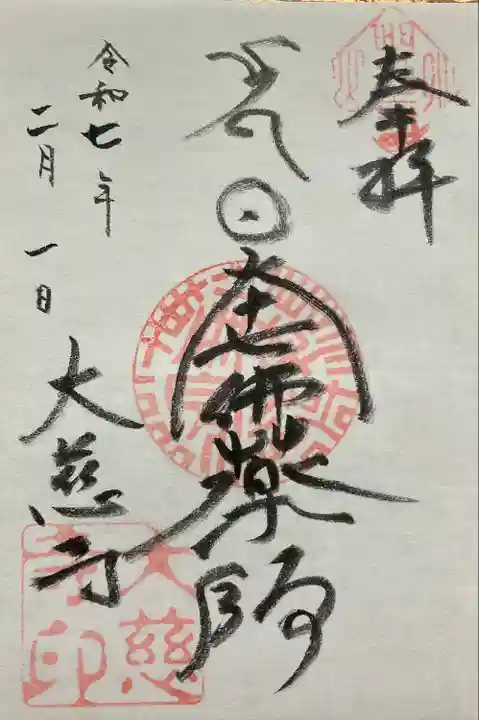 奉拝
佛薬師
令和七年
二月一日
大慈寺
大慈
寺印